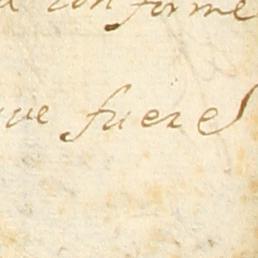 conforme
que fuere